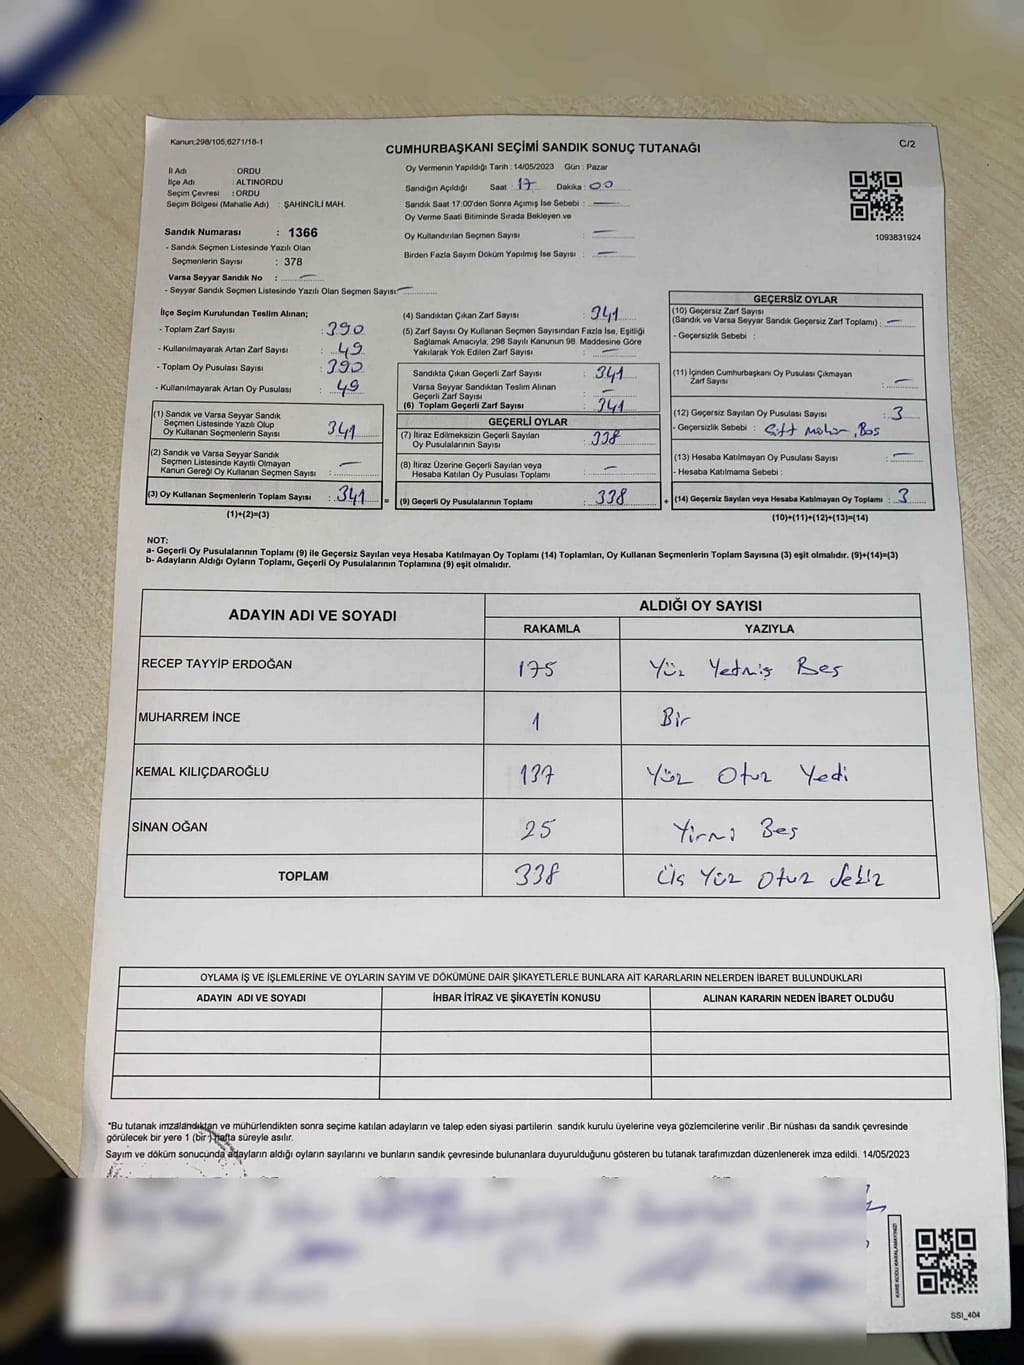 Kanun:298/105,6271/18-1
CUMHURBAŞKANI SEÇİMİ SANDIK SONUÇ TUTANAĞI
C/2
İl Adı : ORDU
İlçe Adı : ALTINORDU
Seçim Çevresi : ORDU
Seçim Bölgesi (Mahalle Adı) : ŞAHİNCİLİ MAH.
Sandık Numarası : 1366
- Sandık Seçmen Listesinde Yazılı Olan
Seçmenlerin Sayısı : 378
Varsa Seyyar Sandık No : —
- Seyyar Sandık Seçmen Listesinde Yazılı Olan Seçmen Sayısı: —
Oy Vermenin Yapıldığı Tarih : 14/05/2023 Gün : Pazar
Sandığın Açıldığı Saat : 17 Dakika : 00
Sandık Saat 17:00'den Sonra Açımış İse Sebebi : —
Oy Verme Saati Bitiminde Sırada Bekleyen ve
Oy Kullandırılan Seçmen Sayısı : —
Birden Fazla Sayım Döküm Yapılmış İse Sayısı : —
1093831924
İlçe Seçim Kurulundan Teslim Alınan;
- Toplam Zarf Sayısı : 390
- Kullanılmayarak Artan Zarf Sayısı : 49
- Toplam Oy Pusulası Sayısı : 390
- Kullanılmayarak Artan Oy Pusulası : 49
(1) Sandık ve Varsa Seyyar Sandık
Seçmen Listesinde Yazılı Olup
Oy Kullanan Seçmenlerin Sayısı : 341
(2) Sandık ve Varsa Seyyar Sandık
Seçmen Listesinde Kayıtlı Olmayan
Kanun Gereği Oy Kullanan Seçmen Sayısı : —
(3) Oy Kullanan Seçmenlerin Toplam Sayısı : 341 =
(1)+(2)=(3)
(4) Sandıktan Çıkan Zarf Sayısı : 341
(5) Zarf Sayısı Oy Kullanan Seçmen Sayısından Fazla İse, Eşitliği
Sağlamak Amacıyla, 298 Sayılı Kanunun 98. Maddesine Göre
Yakılarak Yok Edilen Zarf Sayısı : —
Sandıkta Çıkan Geçerli Zarf Sayısı : 341
Varsa Seyyar Sandıktan Teslim Alınan
Geçerli Zarf Sayısı : —
(6) Toplam Geçerli Zarf Sayısı : 341
GEÇERLİ OYLAR
(7) İtiraz Edilmeksizin Geçerli Sayılan
Oy Pusulalarının Sayısı : 338
(8) İtiraz Üzerine Geçerli Sayılan veya
Hesaba Katılan Oy Pusulası Toplamı : —
(9) Geçerli Oy Pusulalarının Toplamı : 338 +
GEÇERSİZ OYLAR
(10) Geçersiz Zarf Sayısı
(Sandık ve Varsa Seyyar Sandık Geçersiz Zarf Toplamı) : —
- Geçersizlik Sebebi :
(11) İçinden Cumhurbaşkanı Oy Pusulası Çıkmayan
Zarf Sayısı : —
(12) Geçersiz Sayılan Oy Pusulası Sayısı : 3
- Geçersizlik Sebebi : Çift Mühür, Boş
(13) Hesaba Katılmayan Oy Pusulası Sayısı : —
- Hesaba Katılmama Sebebi :
(14) Geçersiz Sayılan veya Hesaba Katılmayan Oy Toplamı : 3
(10)+(11)+(12)+(13)=(14)
NOT:
a- Geçerli Oy Pusulalarının Toplamı (9) ile Geçersiz Sayılan veya Hesaba Katılmayan Oy Toplamı (14) Toplamları, Oy Kullanan Seçmenlerin Toplam Sayısına (3) eşit olmalıdır. (9)+(14)=(3)
b- Adayların Aldığı Oyların Toplamı, Geçerli Oy Pusulalarının Toplamına (9) eşit olmalıdır.
ADAYIN ADI VE SOYADI ALDIĞI OY SAYISI
RAKAMLA YAZIYLA
RECEP TAYYİP ERDOĞAN 175 Yüz Yetmiş Beş
MUHARREM İNCE 1 Bir
KEMAL KILIÇDAROĞLU 137 Yüz Otuz Yedi
SİNAN OĞAN 25 Yirmi Beş
TOPLAM 338 Üç Yüz Otuz Sekiz
OYLAMA İŞ VE İŞLEMLERİNE VE OYLARIN SAYIM VE DÖKÜMÜNE DAİR ŞİKAYETLERLE BUNLARA AİT KARARLARIN NELERDEN İBARET BULUNDUKLARI
ADAYIN ADI VE SOYADI İHBAR İTİRAZ VE ŞİKAYETİN KONUSU ALINAN KARARIN NEDEN İBARET OLDUĞU
*Bu tutanak imzalandıktan ve mühürlendikten sonra seçime katılan adayların ve talep eden siyasi partilerin sandık kurulu üyelerine veya gözlemcilerine verilir .Bir nüshası da sandık çevresinde
görülecek bir yere 1 (bir ) hafta süreyle asılır.
Sayım ve döküm sonucunda adayların aldığı oyların sayılarını ve bunların sandık çevresinde bulunanlara duyurulduğunu gösteren bu tutanak tarafımızdan düzenlenerek imza edildi. 14/05/2023
KARE KODU KARALAMAYINIZ!
SSI_404